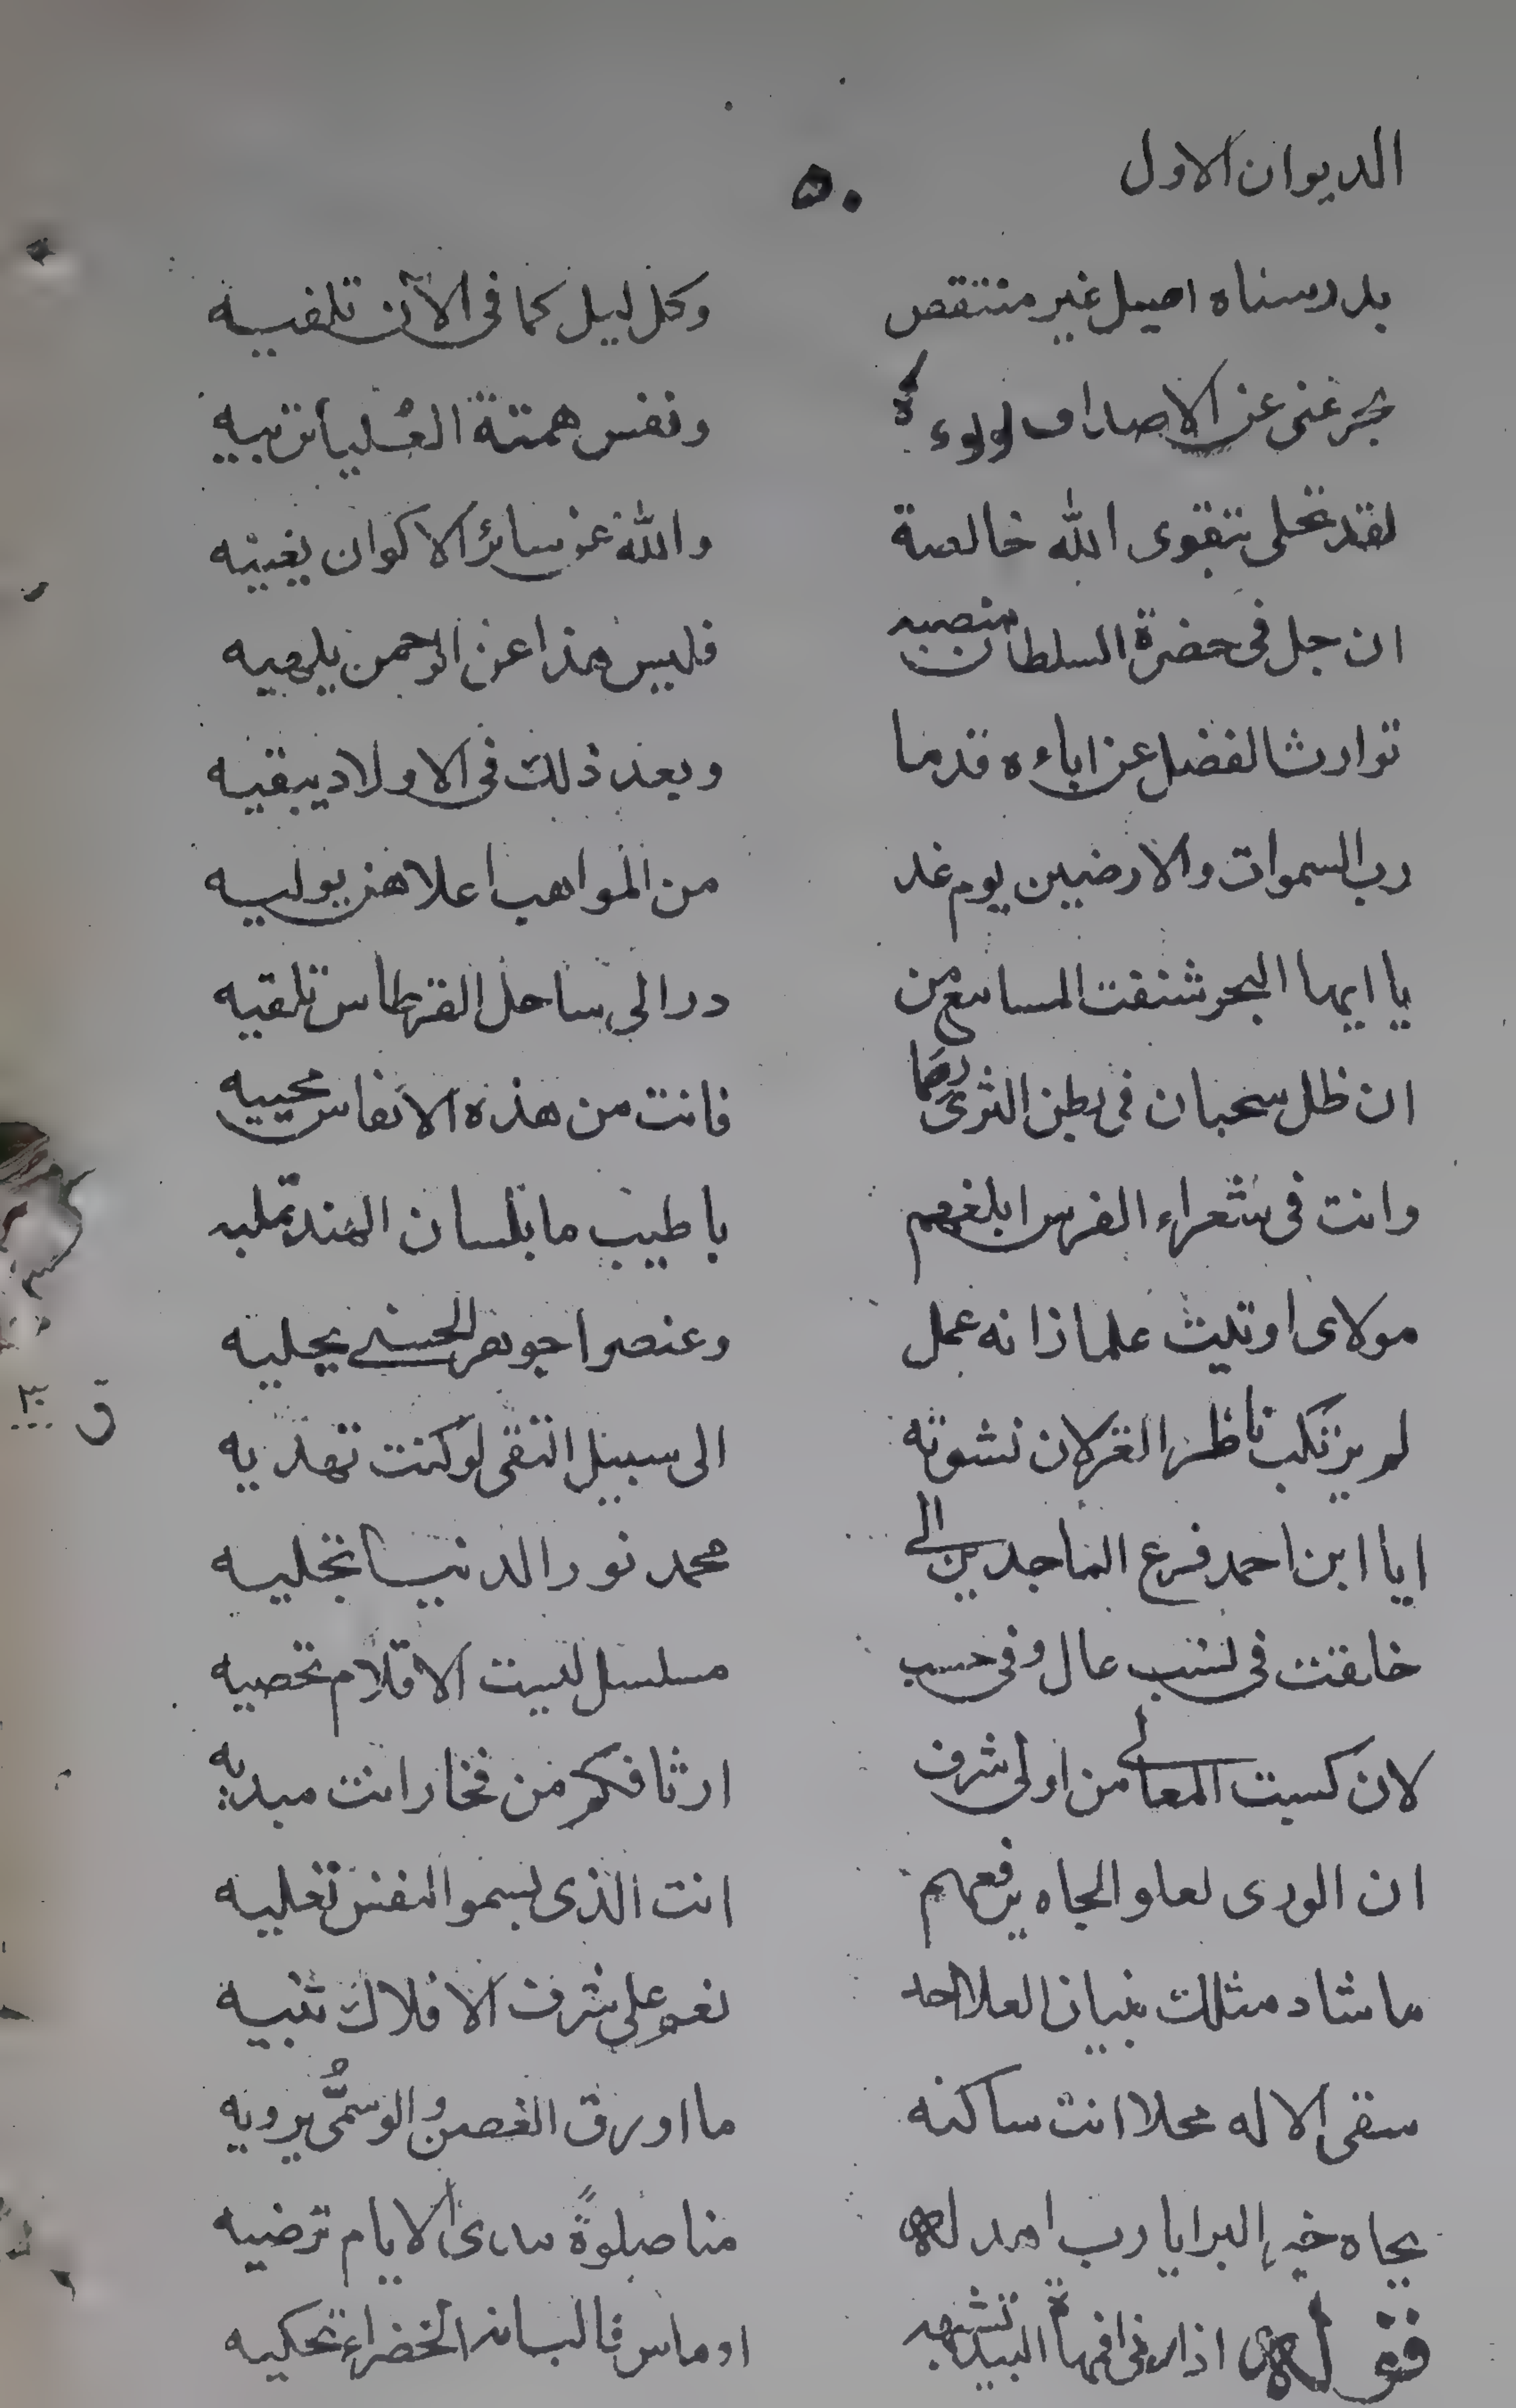 الديوان الاول
٥٠
بدر سناه اصيل غير منتقص وكل ليل كما في الآن تلفيه
غنى عن الاصداف لولوءه ونفس همته العُليا تربيه
لقد تحلى بتقوى الله خالصة والله عن سائر الاكوان يغنيه
ان جل في حضرة السلطان منصبه فليس هذا عن الرحمن يلهيه
توارث الفضل عن اباءه قدما وبعد ذلك في الاولاد يبقيه
رب السموات والارضين يوم غد من المواهب اعلاهن يوليه
يا ايها البحر شنفت المسامع من در الى ساحل القرطاس تلقيه
ان ظل سحبان في بطن الثرى فانت من هذه الانفاس محييه
وانت في شعراء الفرس ابلغهم باطيب ما بلسان الهند تمليه
مولاى اوتيت علما زانه عمل وعنصرا جوهر الحسنى يحليه
لم يرتكب ناظر الغزلان نشوته الى سبيل التقى لو كنت تهديه
ايا ابن احمد فرع الماجدين الى محمد نور الدنيا تجليه
في نسب عال وفي حسب مسلسل ليست الاقلام تحصيه
لان كسبت المعالي من اولى شرف ارثا فكم من فخار انت مبديه
ان الورى لعلو الجاه يرفعهم انت الذى بسمو النفس تعليه
ما شاد مثلك بنيان العلا احد نعم على شرف الافلاك تبنيه
سقى الاله محلا انت ساكنه ما اورق الغصن والوسمُّى يرويه
بجاه خير البرايا رب اهد له منا صلوةً مدى الايام ترضيه
اذا رنى فمهاة البيد تشبهه او ماس فالبانة الخضراء تحكيه
ق ٣٠